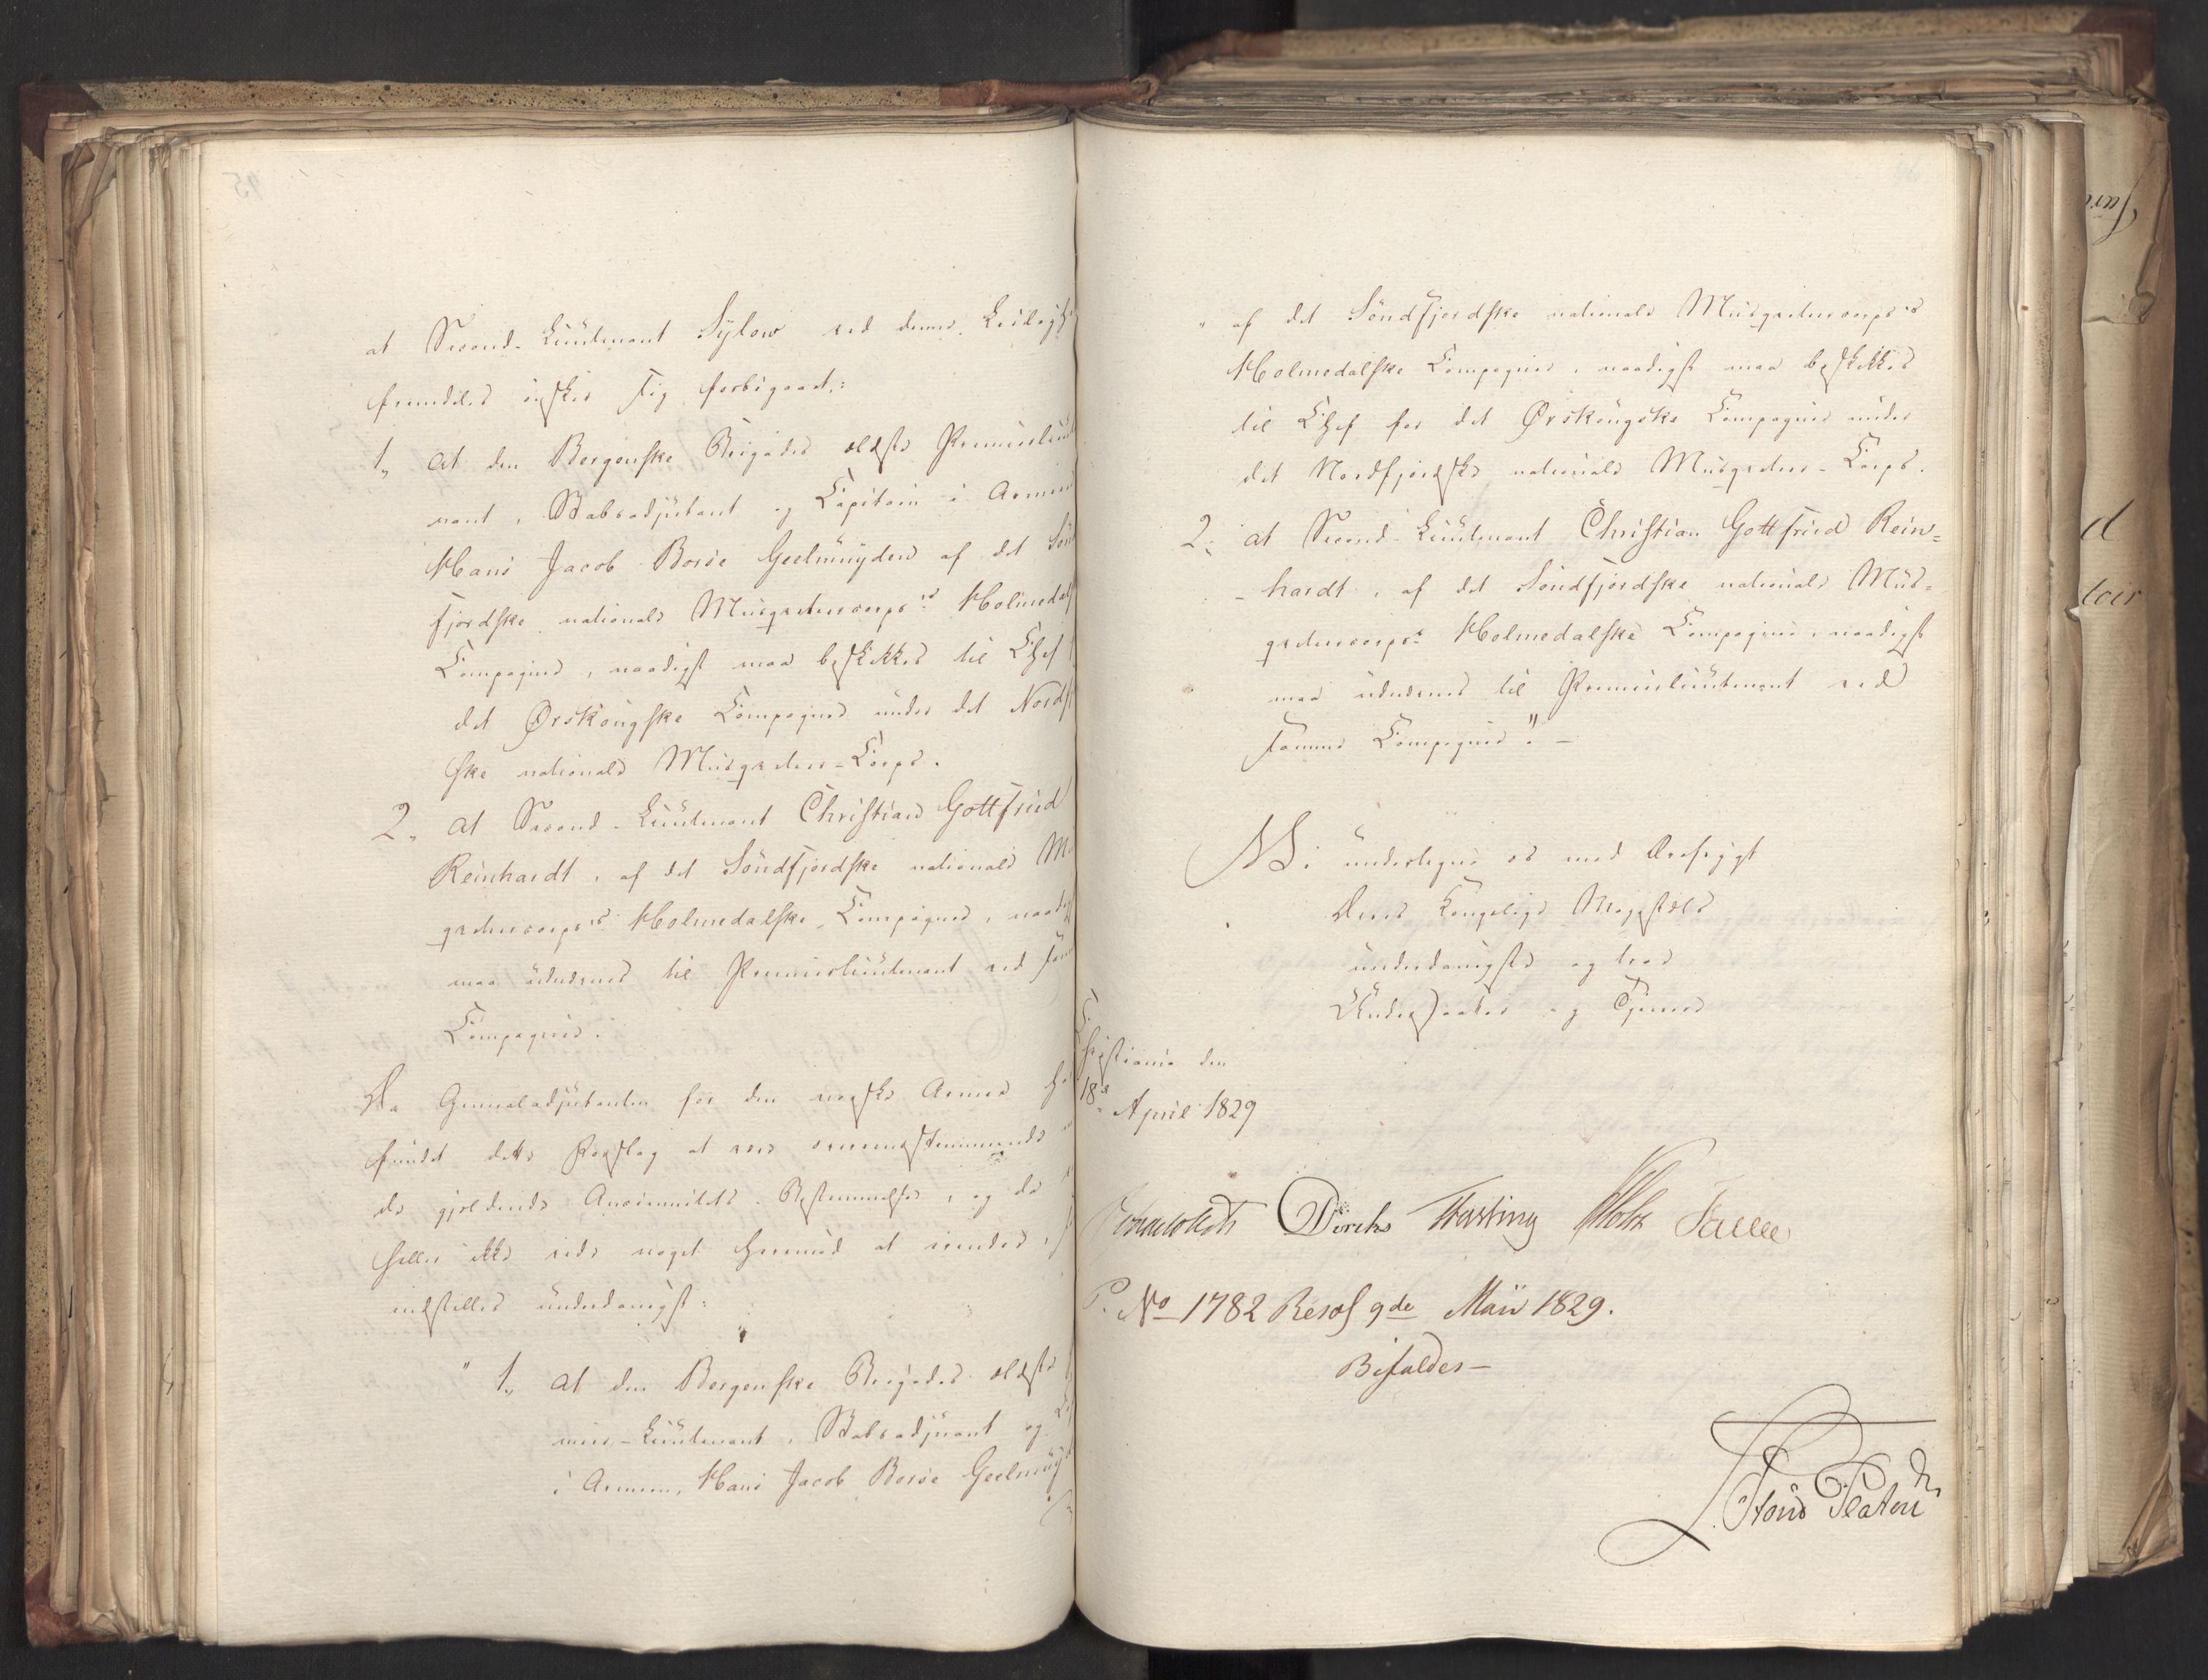 at Second-Lieutenant Sylow ved denne Leiligh
fremdeles ønsker sig forbigaaet:
1, at den Bergenske Brigades ældste Premierlieut
nant, Stabsadjutant og Capitain i Armeen
Hans Jacob Borse Geelmuyden af det Sönd
fjordske nationale Musqueteercorps's Holmedals
Compagnie, naadigst maa beskikkes til Chef
det Ørskougske Compagnie under det Nordf
ske nationale Musqueteer-Corps.
2, at Second-Lieutenant Christian Gottfried
Reinhardt, af det Söndfjordske nationale M
queteercorps's Holmedalske Compagnie, naadig
maa udnævnes til Premierlieutenant ved sam
Compagnie.
Da Generaladjutanten for den norske Armee ha
fundet dette Forslag at være overensstemmende
de gjældende Anciennitets-Bestemmelser, og da
heller ikke vides noget herimod at erindre,
indstilles underdanigst:
" 1, at den Bergenske Brigades ældste
mier-Lieutenant, Stabsadjutant og
i Armeen, Hans Jacob Borse Geelmuyd
" af det Söndfjordske nationale Musqueteercorps's
Holmedalske Compagnie, naadigst maa beskikkes
til Chef for det Ørskougske Compagnie under
det Nordfjordske nationale Musqueteer-Corps.
2, at Second-Lieutenant Christian Gottfried Rein-
-hardt, af det Söndfjordske nationale Mus-
queteercorps's Holmedalske Compagnie, naadigst
maa udnævnes til Premierlieutenant ved
samme Compagnie". —
Vi undertegne os med Ærefrygt
Deres Kongelige Majestæts
underdanigste og troe
Undersaatter og Tjenere
Christiania den
18de April 1829
Diriks Fasting Holst
P. No 1782 Resol 9de Maii 1829.
Bifaldes —
Platou